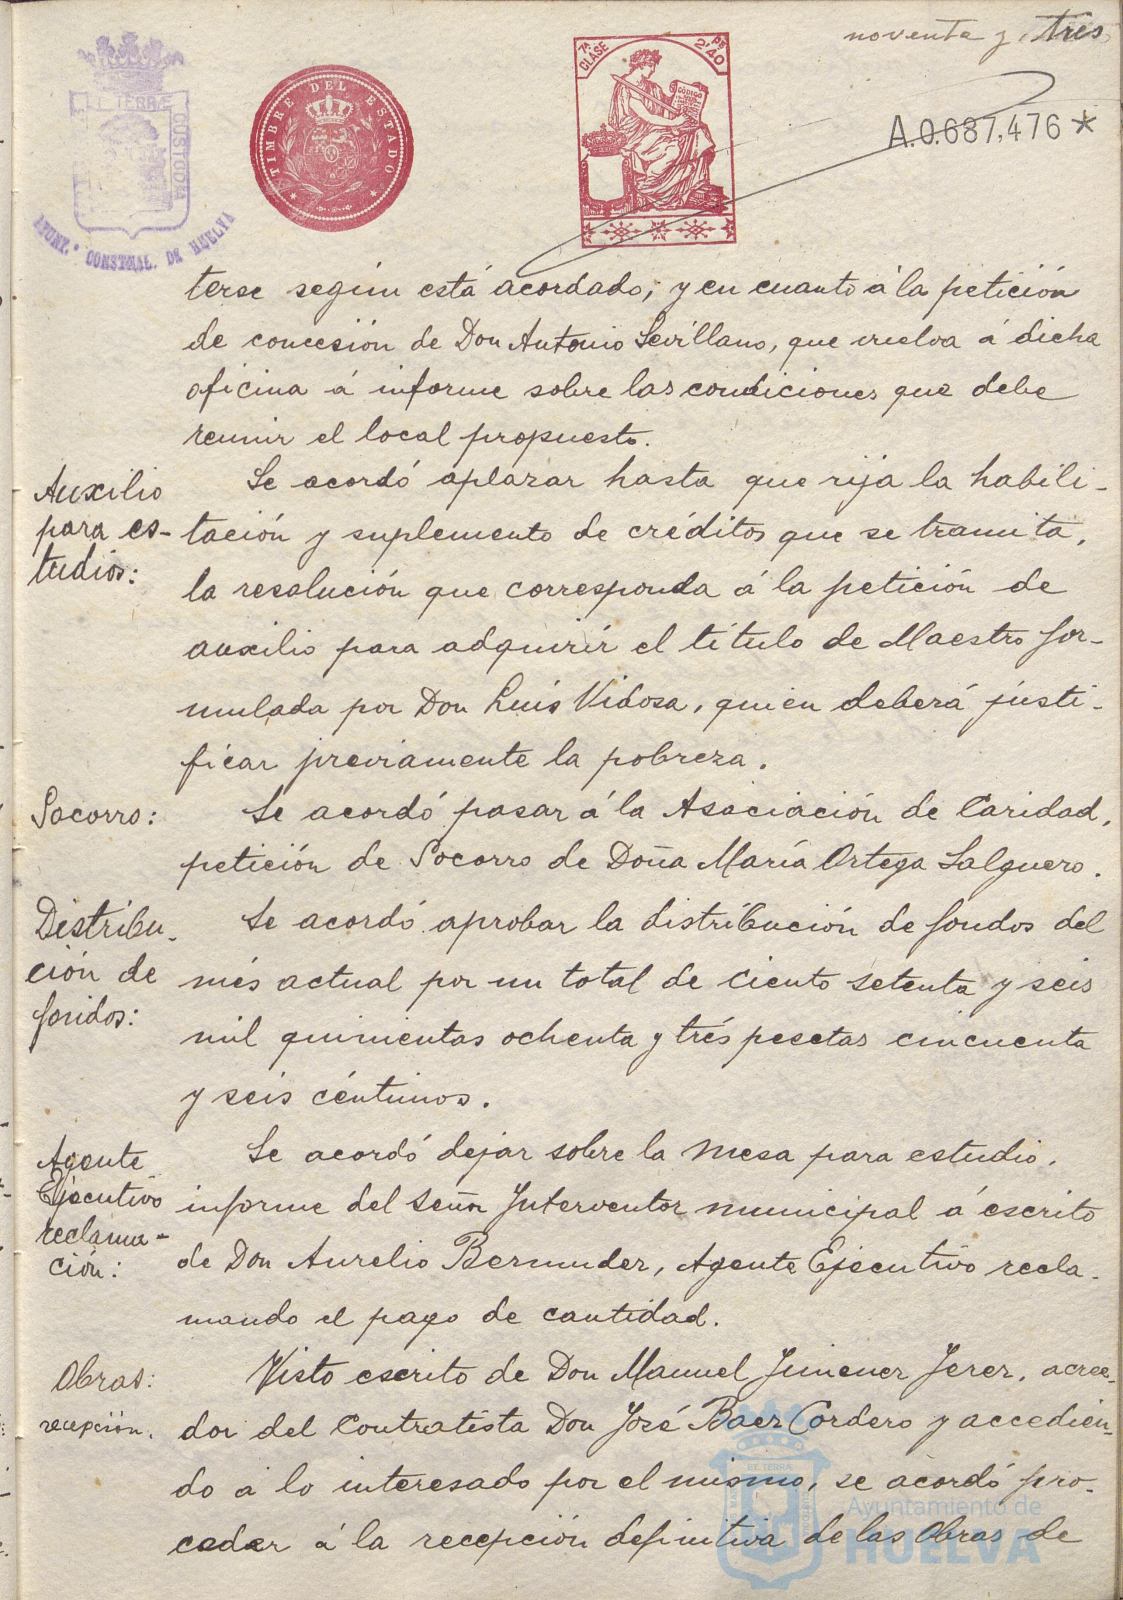 noventa y tres
ET TERRÆ
CUSTODIA
AYUNT. CONSTNAL. DE HUELVA
TIMBRE DEL ESTADO
7ª CLASE
2'40
CÓDIGO
A.0.687,476*
terse según está acordado; y en cuanto á la petición
de concesión de Don Antonio Sevillano, que vuelva á dicha
oficina á informe sobre las condiciones que debe
reunir el local propuesto.
Auxilio
para es-
tudios:
Se acordó aplazar hasta que rija la habili-
tación y suplemento de créditos que se tramita,
la resolución que corresponda á la petición de
auxilio para adquirir el título de Maestro for-
mulada por Don Luis Vidosa, quien deberá justi-
ficar previamente la pobreza.
Socorro:
Se acordó pasar á la Asociación de Caridad,
petición de Socorro de Doña María Ortega Salguero.
Distribu-
ción de
fondos:
Se acordó aprobar la distribución de fondos del
més actual por un total de ciento setenta y seis
mil quinientas ochenta y trés pesetas cincuenta
y seis céntimos.
Agente
Ejecutivo
reclama-
ción:
Se acordó dejar sobre la mesa para estudio,
informe del señor Interventor municipal á escrito
de Don Aurelio Bermudez, Agente Ejecutivo recla-
mando el pago de cantidad.
Obras:
recepción.
Visto escrito de Don Manuel Jimenez Jerez, acree-
dor del Contratista Don José Baez Cordero y accedien-
do á lo interesado por el mismo, se acordó pro-
ceder á la recepción definitiva de las Obras de
Ayuntamiento de
HUELVA